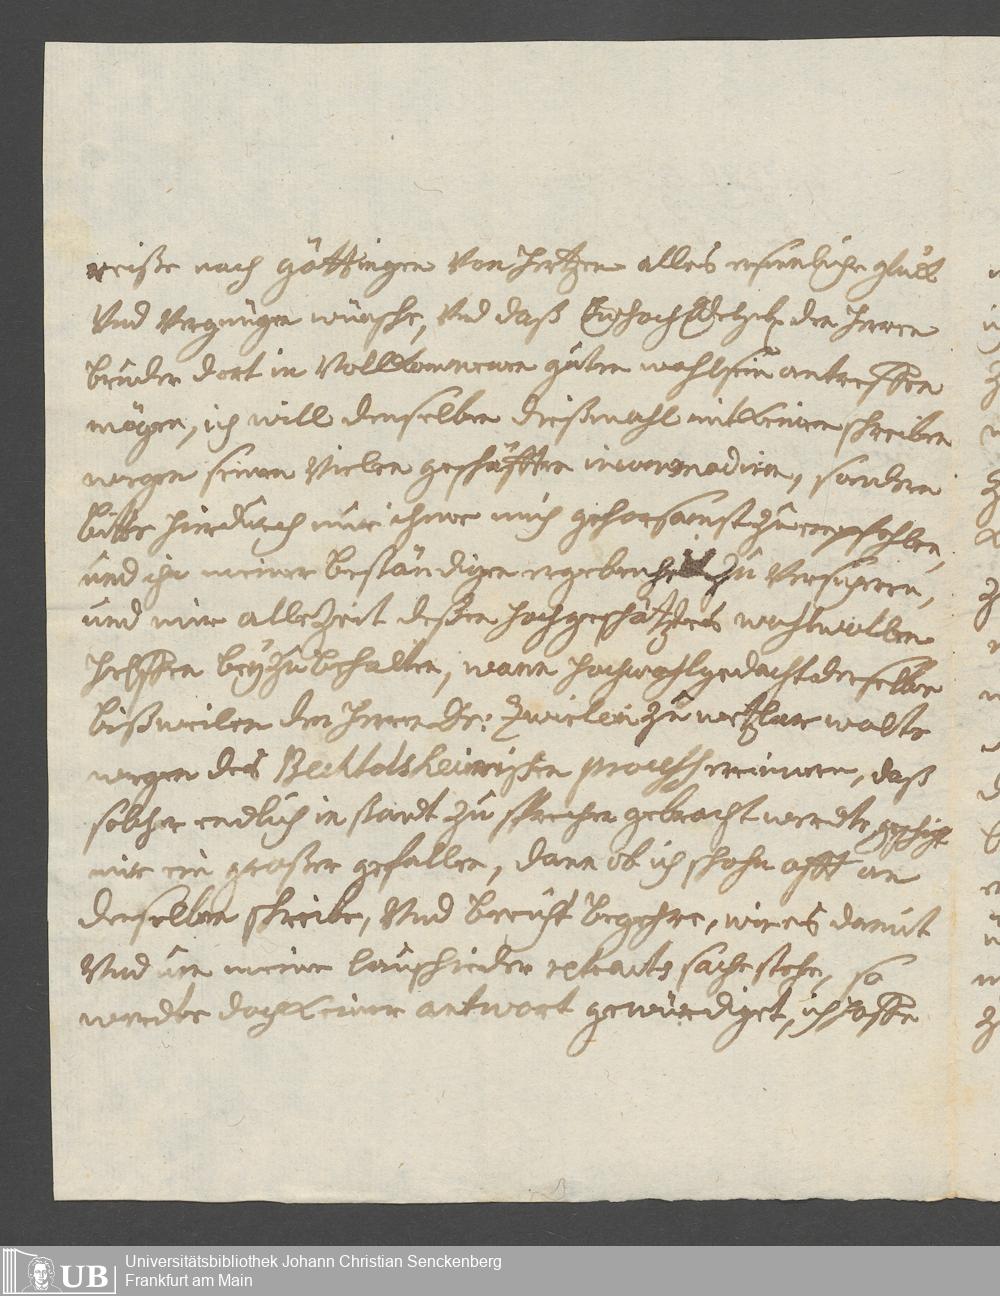 reiße nach göttingen von hertzen alles ersinnliche glück
Und Vergnügen wünsche, Und daß den herren
bruder dort in Vollkommenen guten wohlsein antreffen
mögen, ich will denselben dießmahl mit keinen schreiben
wegen seinen Vielen geschäfften incommodiren, sondern
bitte hirdurch nur ihme mich gehorsamst zu empfehlen,
und ihn meiner beständigen ergebenheit zu Versichren,
und mir allezeit deßen hochgeschätztes wohlwollen
helffen beyzubehalten, wann hochwohlgedacht derselbe
bißweilen den herren Dr: Zwierlein zu wetzlar wolte
wegen des Bechtolsheimischen process erinnern, daß
solcher endlich in stand zu sprechen gebracht werdte, geschicht
mir ein großer gefallen, dann ob ich schohn offt an
denselben schreibe, Und bericht begehre, wie es damit
Und um meine lauschieder extraits sache stehe, so
werdte doch keiner antwort gewürdiget, ich hoffe
Universitätsbibliothek Johann Christian Senckenberg
Frankfurt am Main
UB